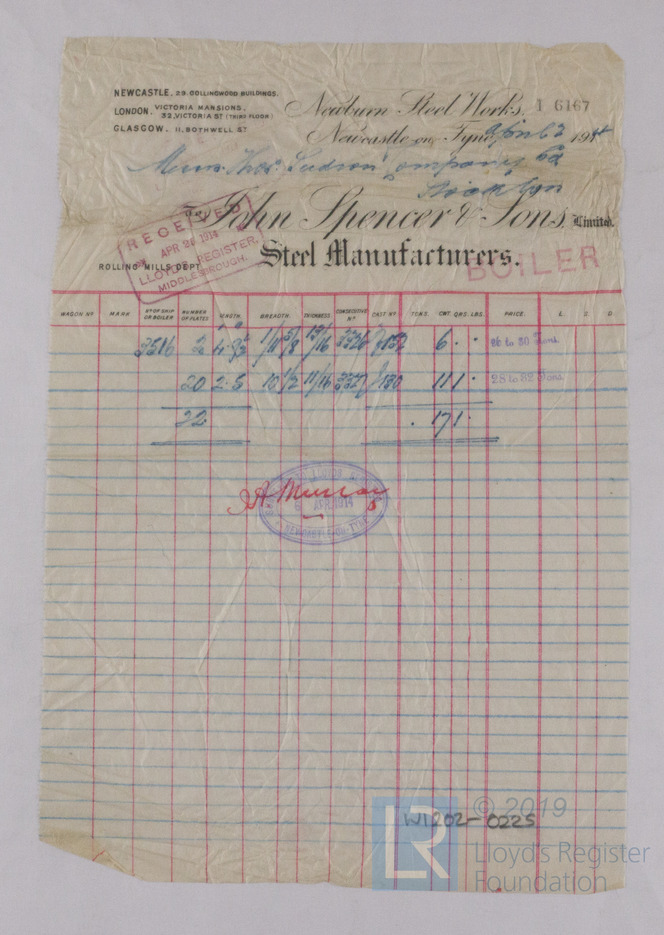 NEWCASTLE. 29. COLLINGWOOD BUILDINGS.
LONDON. VICTORIA MANSIONS, 32, VICTORIA ST (THIRD FLOOR)
GLASGOW. 11, BOTHWELL ST
Newburn Steel Works. I 6167
Newcastle on Tyne, April 6 1914
Messrs
John Spencer & Sons, Limited.
Steel Manufacturers.
ROLLING MILLS DEPT
RECEIVED
APR 1914
LLOYD'S REGISTER,
MIDDLESBROUGH.
BOILER
WAGON No MARK No OF SHIP OR BOILER NUMBER OF PLATES LENGTH. BREADTH. THICKNESS CONSECUTIVE No CAST No TONS. CWT. QRS. LBS. PRICE. £ S D
2516 2 15/16 6 26 to 30 Tons.
20 2.5 10 1/2 11/16 11 1 28 to 32 Tons.
22 17 1
APR 1914
NEWCASTLE-ON-TYNE
LR
W1202-0225
© 2019
Lloyd's Register
Foundation